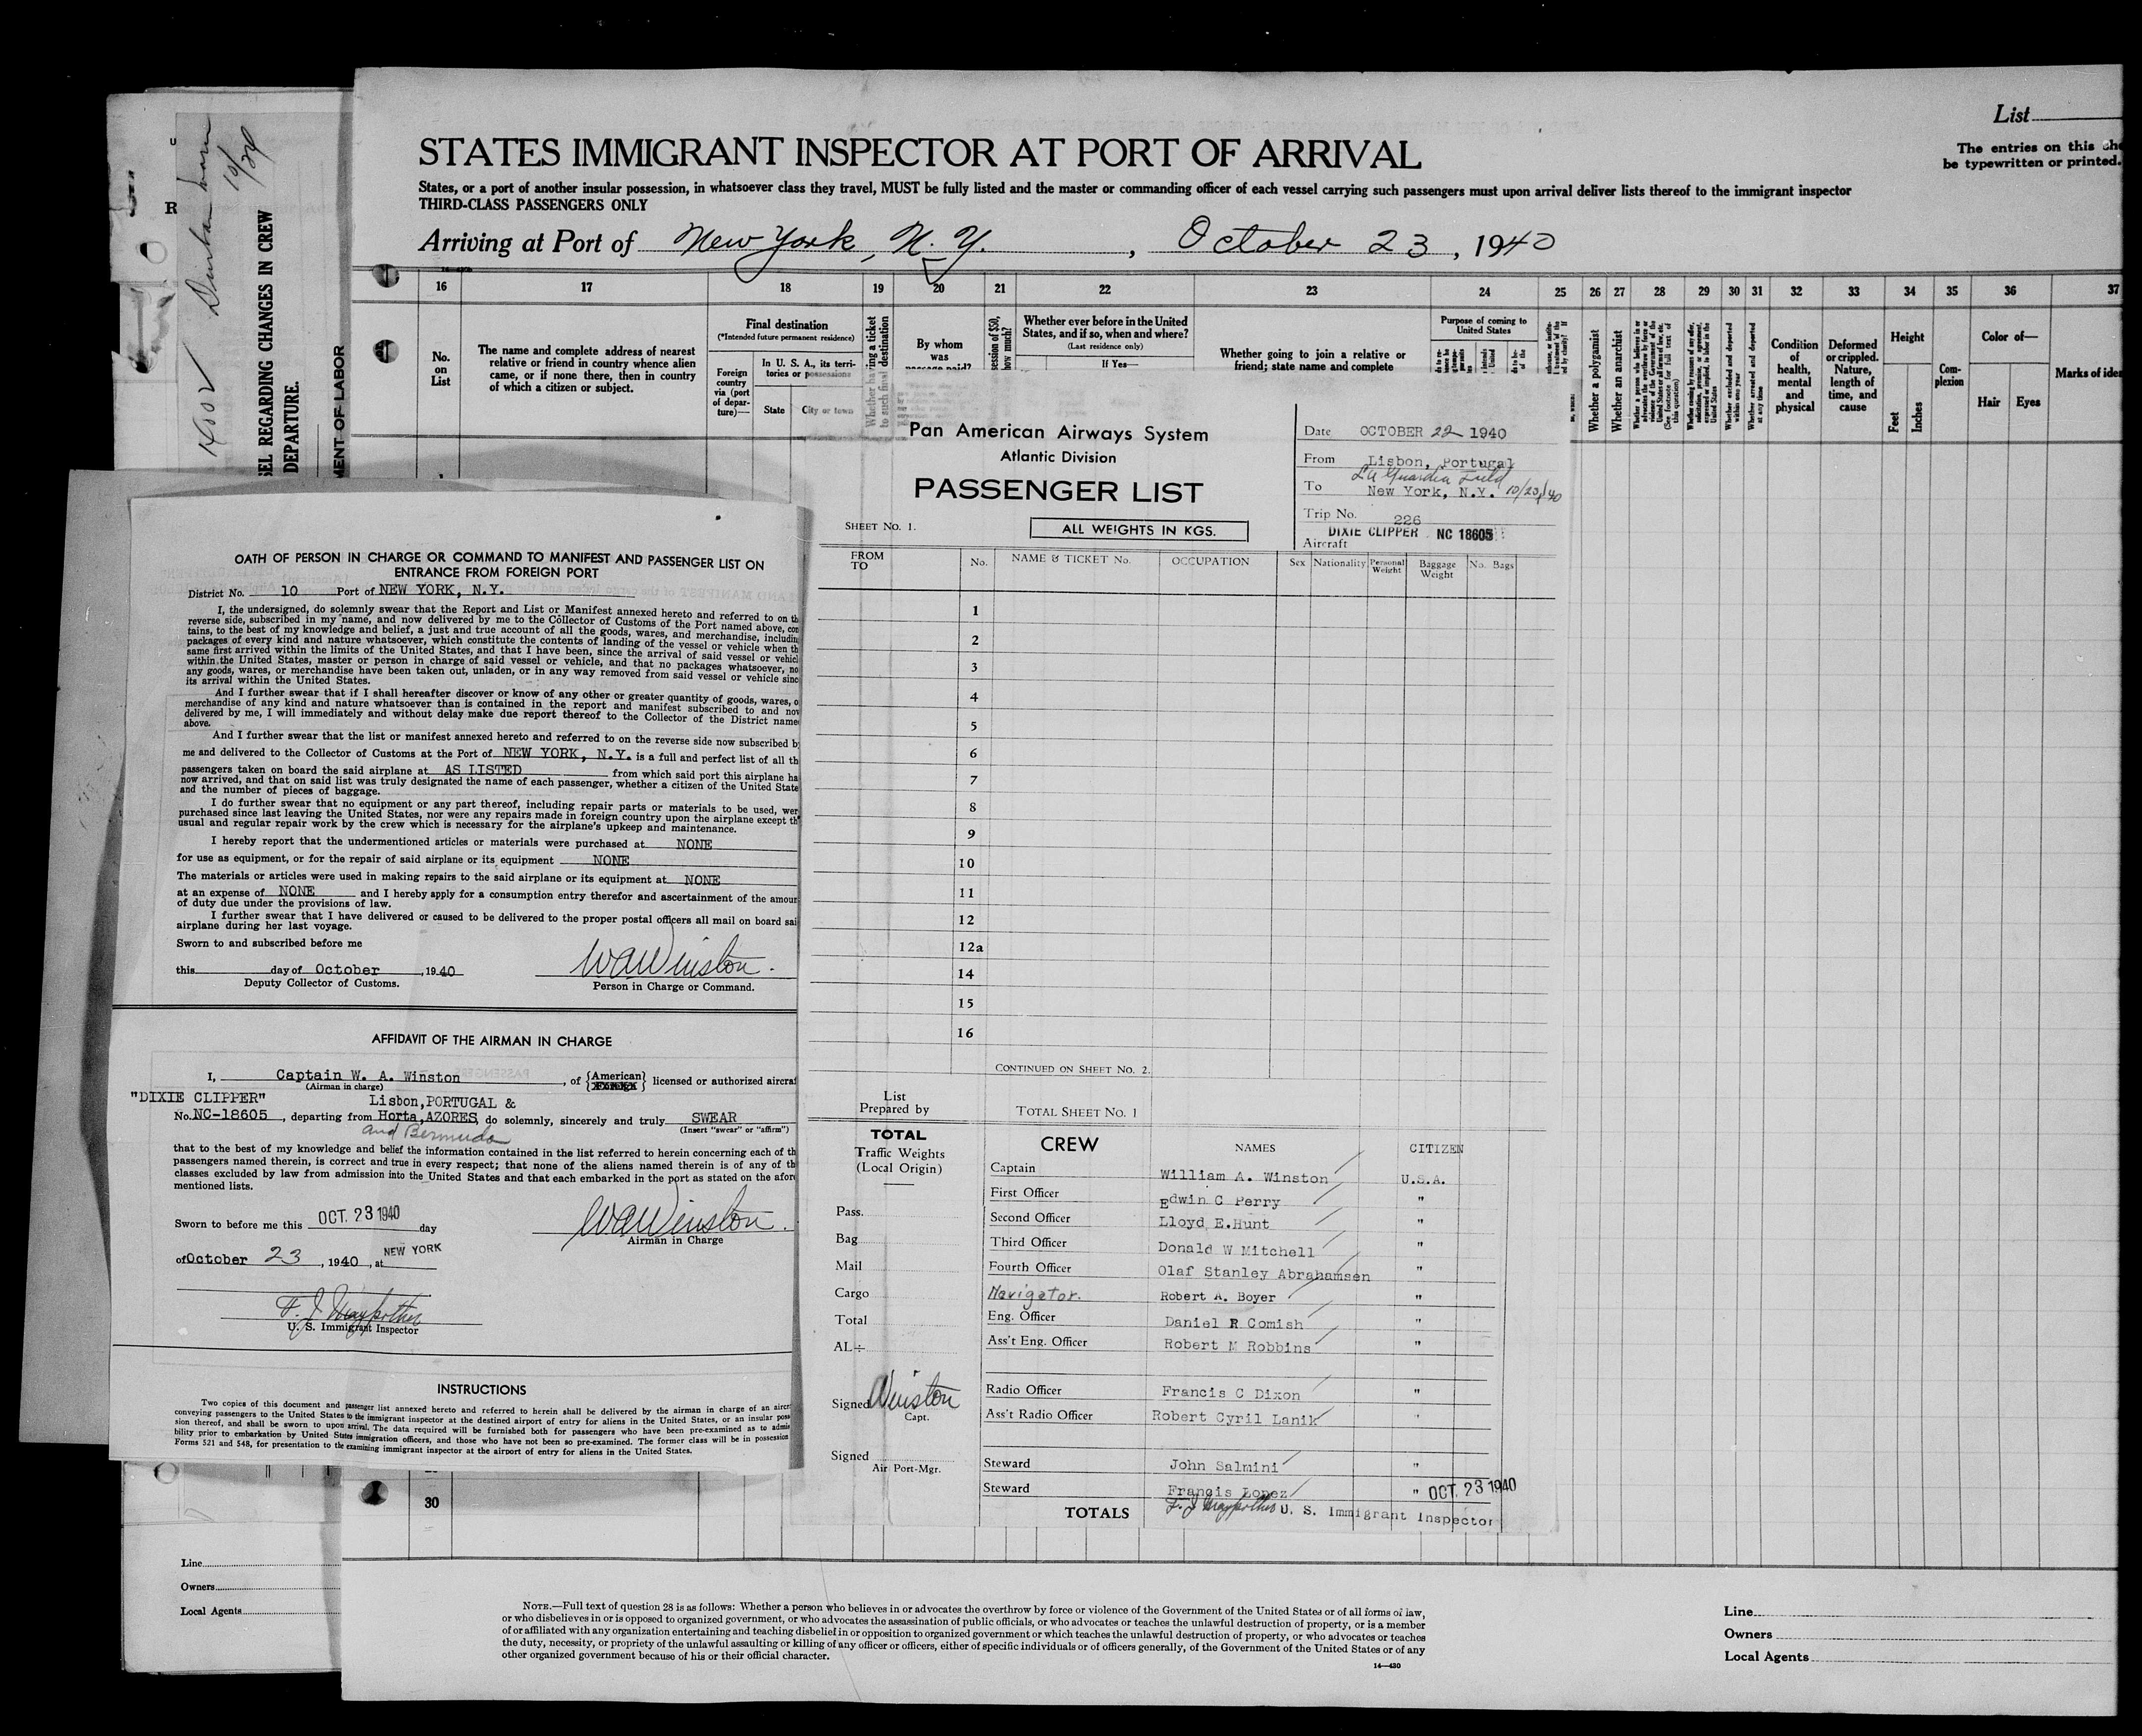 List
STATES IMMIGRANT INSPECTOR AT PORT OF ARRIVAL
The entries on this
be typewritten or printed.
States, or a port of another insular possession, in whatsoever class they travel, MUST be fully listed and the master or commanding officer of each vessel carrying such passengers must upon arrival deliver lists thereof to the immigrant inspector
THIRD-CLASS PASSENGERS ONLY
Arriving at Port of New York, N. Y. , October 23 , 1940
16 17 18 19 20 21 22 23 24 25 26 27 28 29 30 31 32 33 34 35 36 37
No. on List
The name and complete address of nearest relative or friend in country whence alien came, or if none there, then in country of which a citizen or subject.
Final destination
(*Intended future permanent residence)
Foreign country via (port of departure)—
In U. S. A., its territories or possessions
State
City or town
Whether having a ticket to such final destination
By whom was
Whether ever before in the United States, and if so, when and where?
(Last residence only)
If Yes—
Whether going to join a relative or friend; state name and complete
Purpose of coming to United States
Whether a polygamist
Whether an anarchist
Condition of health, mental and physical
Deformed or crippled. Nature, length of time, and cause
Height
Feet
Inches
Complexion
Color of—
Hair
Eyes
R
10/24
REGARDING CHANGES IN CREW
DEPARTURE.
MENT OF LABOR
OATH OF PERSON IN CHARGE OR COMMAND TO MANIFEST AND PASSENGER LIST ON
ENTRANCE FROM FOREIGN PORT
District No. 10 Port of NEW YORK, N.Y.
I, the undersigned, do solemnly swear that the Report and List or Manifest annexed hereto and referred to on th
reverse side, subscribed in my name, and now delivered by me to the Collector of Customs of the Port named above, con
tains, to the best of my knowledge and belief, a just and true account of all the goods, wares, and merchandise, including
packages of every kind and nature whatsoever, which constitute the contents of landing of the vessel or vehicle when th
same first arrived within the limits of the United States, and that I have been, since the arrival of said vessel or vehicl
within the United States, master or person in charge of said vessel or vehicle, and that no packages whatsoever, no
any goods, wares, or merchandise have been taken out, unladen, or in any way removed from said vessel or vehicle sinc
its arrival within the United States.
And I further swear that if I shall hereafter discover or know of any other or greater quantity of goods, wares, o
merchandise of any kind and nature whatsoever than is contained in the report and manifest subscribed to and now
delivered by me, I will immediately and without delay make due report thereof to the Collector of the District name
above.
And I further swear that the list or manifest annexed hereto and referred to on the reverse side now subscribed b
me and delivered to the Collector of Customs at the Port of NEW YORK, N.Y. is a full and perfect list of all th
passengers taken on board the said airplane at AS LISTED from which said port this airplane ha
now arrived, and that on said list was truly designated the name of each passenger, whether a citizen of the United State
and the number of pieces of baggage.
I do further swear that no equipment or any part thereof, including repair parts or materials to be used, wer
purchased since last leaving the United States, nor were any repairs made in foreign country upon the airplane except th
usual and regular repair work by the crew which is necessary for the airplane's upkeep and maintenance.
I hereby report that the undermentioned articles or materials were purchased at NONE
for use as equipment, or for the repair of said airplane or its equipment NONE
The materials or articles were used in making repairs to the said airplane or its equipment at NONE
at an expense of NONE and I hereby apply for a consumption entry therefor and ascertainment of the amoun
of duty due under the provisions of law.
I further swear that I have delivered or caused to be delivered to the proper postal officers all mail on board sai
airplane during her last voyage.
Sworn to and subscribed before me
this day of October , 1940
WAWinston.
Deputy Collector of Customs.
Person in Charge or Command.
AFFIDAVIT OF THE AIRMAN IN CHARGE
I, Captain W. A. Winston , of {American} licensed or authorized aircra
(Airman in charge)
"DIXIE CLIPPER" Lisbon,PORTUGAL &
No.NC-18605 , departing from Horta,AZORES, do solemnly, sincerely and truly SWEAR
and Bermuda
(Insert "swear" or "affirm")
that to the best of my knowledge and belief the information contained in the list referred to herein concerning each of th
passengers named therein, is correct and true in every respect; that none of the aliens named therein is of any of th
classes excluded by law from admission into the United States and that each embarked in the port as stated on the afore
mentioned lists.
Sworn to before me this OCT. 23 1940 day
WAWinston.
Airman in Charge
of October 23 , 1940 , at NEW YORK
U. S. Immigrant Inspector
INSTRUCTIONS
Two copies of this document and passenger list annexed hereto and referred to herein shall be delivered by the airman in charge of an aircr
conveying passengers to the United States to the immigrant inspector at the destined airport of entry for aliens in the United States, or an insular poss
sion thereof, and shall be sworn to upon arrival. The data required will be furnished both for passengers who have been pre-examined as to admis
bility prior to embarkation by United States immigration officers, and those who have not been so pre-examined. The former class will be in possession
Forms 521 and 548, for presentation to the examining immigrant inspector at the airport of entry for aliens in the United States.
Pan American Airways System
Atlantic Division
PASSENGER LIST
SHEET No. 1.
ALL WEIGHTS IN KGS.
Date OCTOBER 22 1940
From Lisbon, Portugal
La Guardia Field
To New York, N.Y. 10/23/40
Trip No. 226
DIXIE CLIPPER NC 18605
Aircraft
FROM TO No. NAME & TICKET No. OCCUPATION Sex Nationality Personal Weight Baggage Weight No. Bags
1
2
3
4
5
6
7
8
9
10
11
12
12a
14
15
16
CONTINUED ON SHEET No. 2.
List Prepared by
TOTAL SHEET No. 1
TOTAL
Traffic Weights
(Local Origin)
Pass.
Bag
Mail
Cargo
Total
AL÷
Signed Winston
Capt.
Signed
Air Port-Mgr.
CREW NAMES CITIZEN
Captain William A. Winston U.S.A.
First Officer Edwin C Perry "
Second Officer Lloyd E.Hunt "
Third Officer Donald W Mitchell "
Fourth Officer Olaf Stanley Abrahamsen "
Navigator. Robert A. Boyer "
Eng. Officer Daniel R Comish "
Ass't Eng. Officer Robert M Robbins "
Radio Officer Francis C Dixon "
Ass't Radio Officer Robert Cyril Lanik "
Steward John Salmini "
Steward Francis Lopez " OCT. 23 1940
TOTALS U. S. Immigrant Inspector
30
Line
Owners
Local Agents
NOTE.—Full text of question 28 is as follows: Whether a person who believes in or advocates the overthrow by force or violence of the Government of the United States or of all forms of law,
or who disbelieves in or is opposed to organized government, or who advocates the assassination of public officials, or who advocates or teaches the unlawful destruction of property, or is a member
of or affiliated with any organization entertaining and teaching disbelief in or opposition to organized government or which teaches the unlawful destruction of property, or who advocates or teaches
the duty, necessity, or propriety of the unlawful assaulting or killing of any officer or officers, either of specific individuals or of officers generally, of the Government of the United States or of any
other organized government because of his or their official character.
14—430
Line
Owners
Local Agents